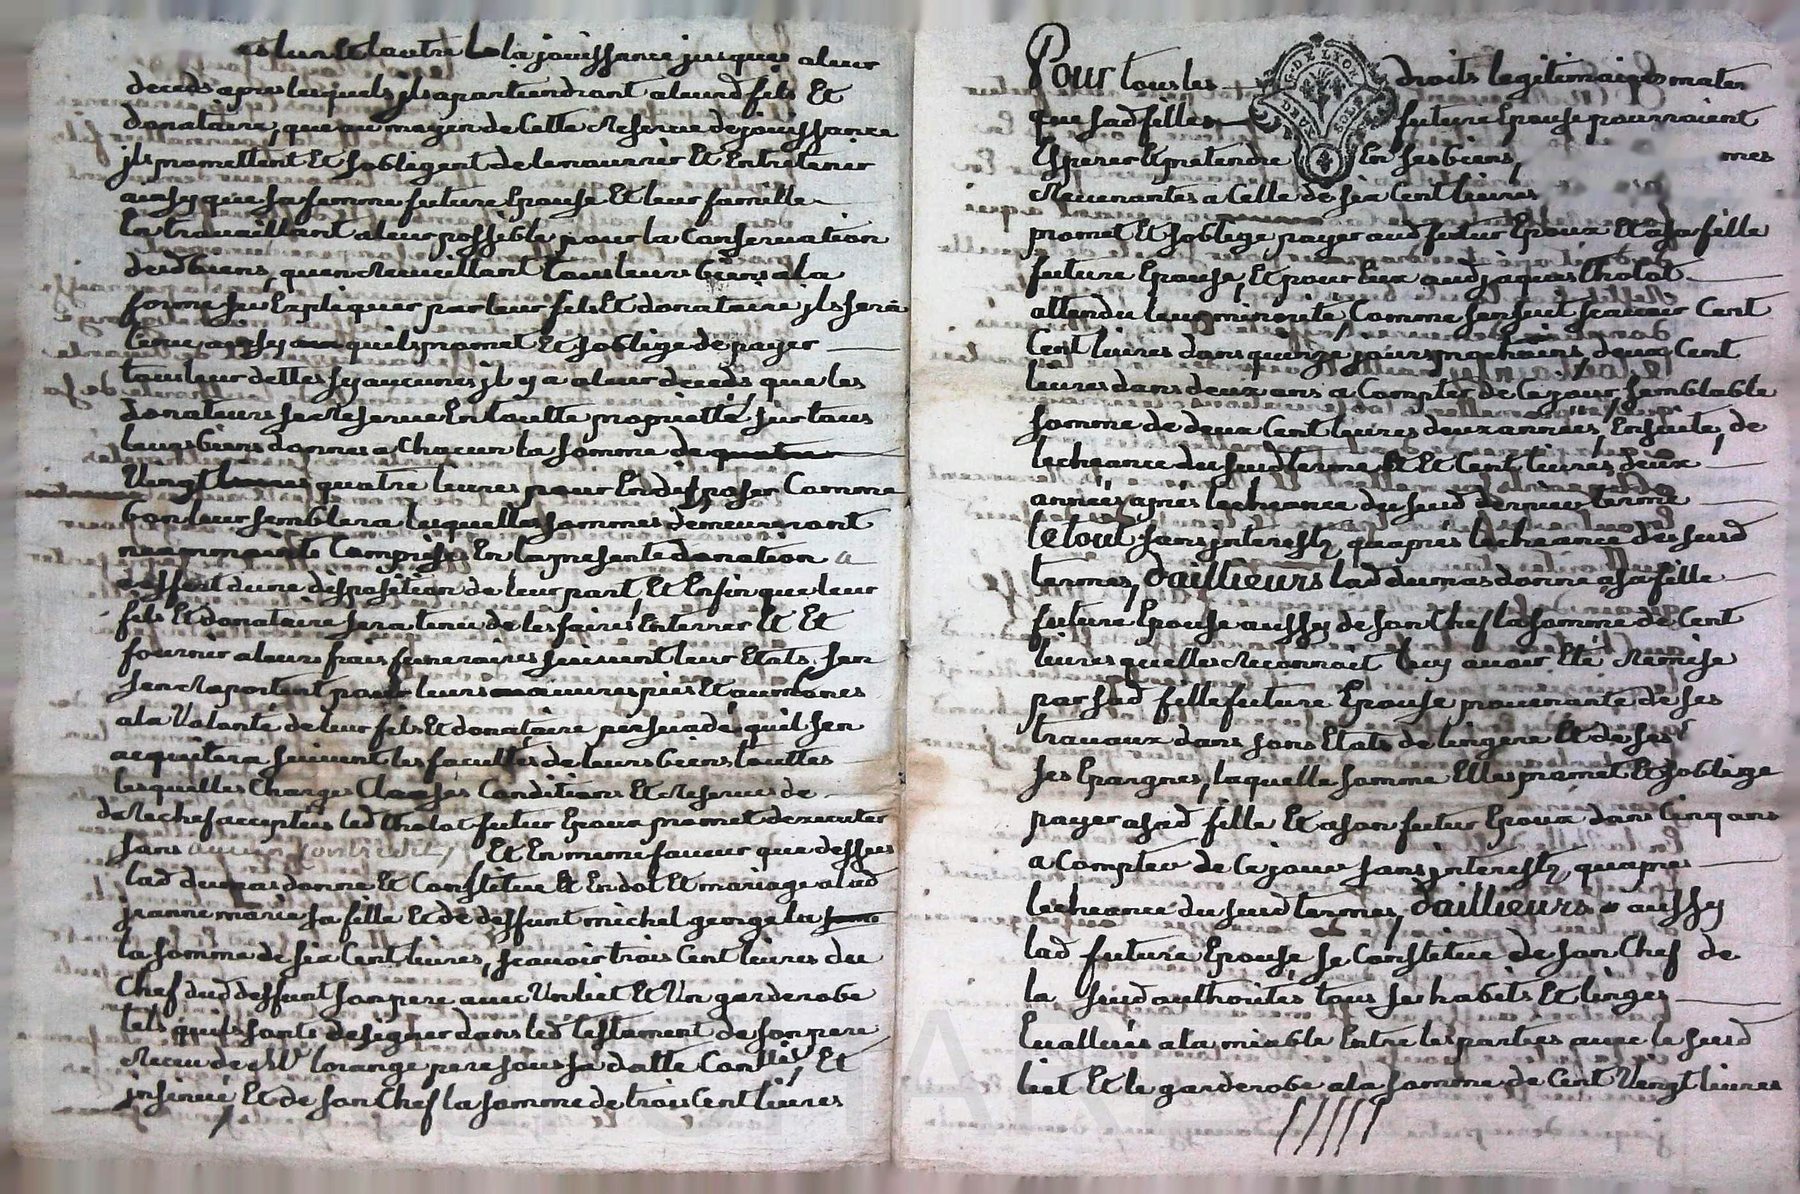 et lun et lautre la jouissance jusques a leur
deceds apres lesquels jls apartiendront a leurd fils Et
donataire, que au moyen de Cette Reserve de jouissance
jls promettent Et sobligent de le nourrir Et Entretenir
aussy que sa femme future Epouse Et leur famille
En travaillant a leur possible pour la Conservation
desd biens, quen Recueillant tous leurs biens a la
forme sus Expliquer par leur fils Et donataire jls sera
tenu aussy quils promet Et soblige de payer
tous leur dettes sy aucunes jl y a a leur deceds, que les
donateurs se Reserve En toutte proprietté sur tous
leurs biens donnes a Chacun la somme de quatre
Vingt quatre livres pour En disposer Comme
bon leur semblera lesquelles sommes demeureront
Comprises En la presente donation a
deffaut dune disposition de leur part Et Enfin que leur
fils Et donataire sera tenu de les faires Enterrer Et Et
fournir a leurs frais funeraires suivent leur Etats, sen
sen Raportent pour leurs œuvres pies Et aumones
a la Volonté de leur fils Et donataire persuadé quil sen
acquitera suivent les facultes de leurs biens touttes
lesquelles Charges Clauses Conditions Et Reserves de
de Rechef acceptées led Cholot futur Epoux promet dexecuter
sans aucun contredit, Et En meme faveur que dessus
lad dumas donne Et Constitue Et En dot Et mariage a lad
jeanne marie sa fille Et de deffunt michel george la
la somme de six Cent livres, scavoir trois Cent livres du
Chef dud deffunt son pere avec Un liet Et Un garderobe
tels quils sont designer dans led testament de son pere
Recu de Me lorange pere sous sa datte Contlé, Et
jnsinué Et de son Chef la somme de trois Cent livres
Pour tous les droits legitimaires mater
que sad fille future Epouse pourroient
Esperer Et pretendre En ses biens, mes
Revenantes a Celle de six Cent livres
promet Et soblige payer aud futur Epoux Et a sa fille
future Epouse, Et pour Eux aud jaques Cholot
attendu leur minorité, Comme sensuit scavoir Cent
Cent livres dans quinze jours prochains, deux Cent
livres dans deux ans a Compter de Ce jour, semblable
somme de deux Cent livres deux années, Ensuite, de
lecheance du susd terme Et Et Cent livres deux
années apres lecheance du susd dernier terme
le tout sans jnterests, quapres lecheance des susd
termes, dailleurs lad dumas donne a sa fille
future Epouse aussy de son Chef la somme de Cent
livres quelle Reconnoit Ecy avoir Eté Remise
par sad fille future Epouse provenante de ses
travaux dans sons Etats de lingere Et de ses
ses Epargnes, laquelle somme Elle promet Et soblige
payer a sad fille Et a son futur Epoux dans Cinq ans
a Compter de Ce jour sans jnterests, quapres
lecheance du susd termes, dailleurs aussy
lad future Epouse se Constitue de son Chef de
la susd authorité, tous ses habits Et linges
Evallués a la miable Entre les parties avec le susd
liet Et le garderobe a la somme de Cent Vingt livres
G. DE LYON
DEUX SOLS